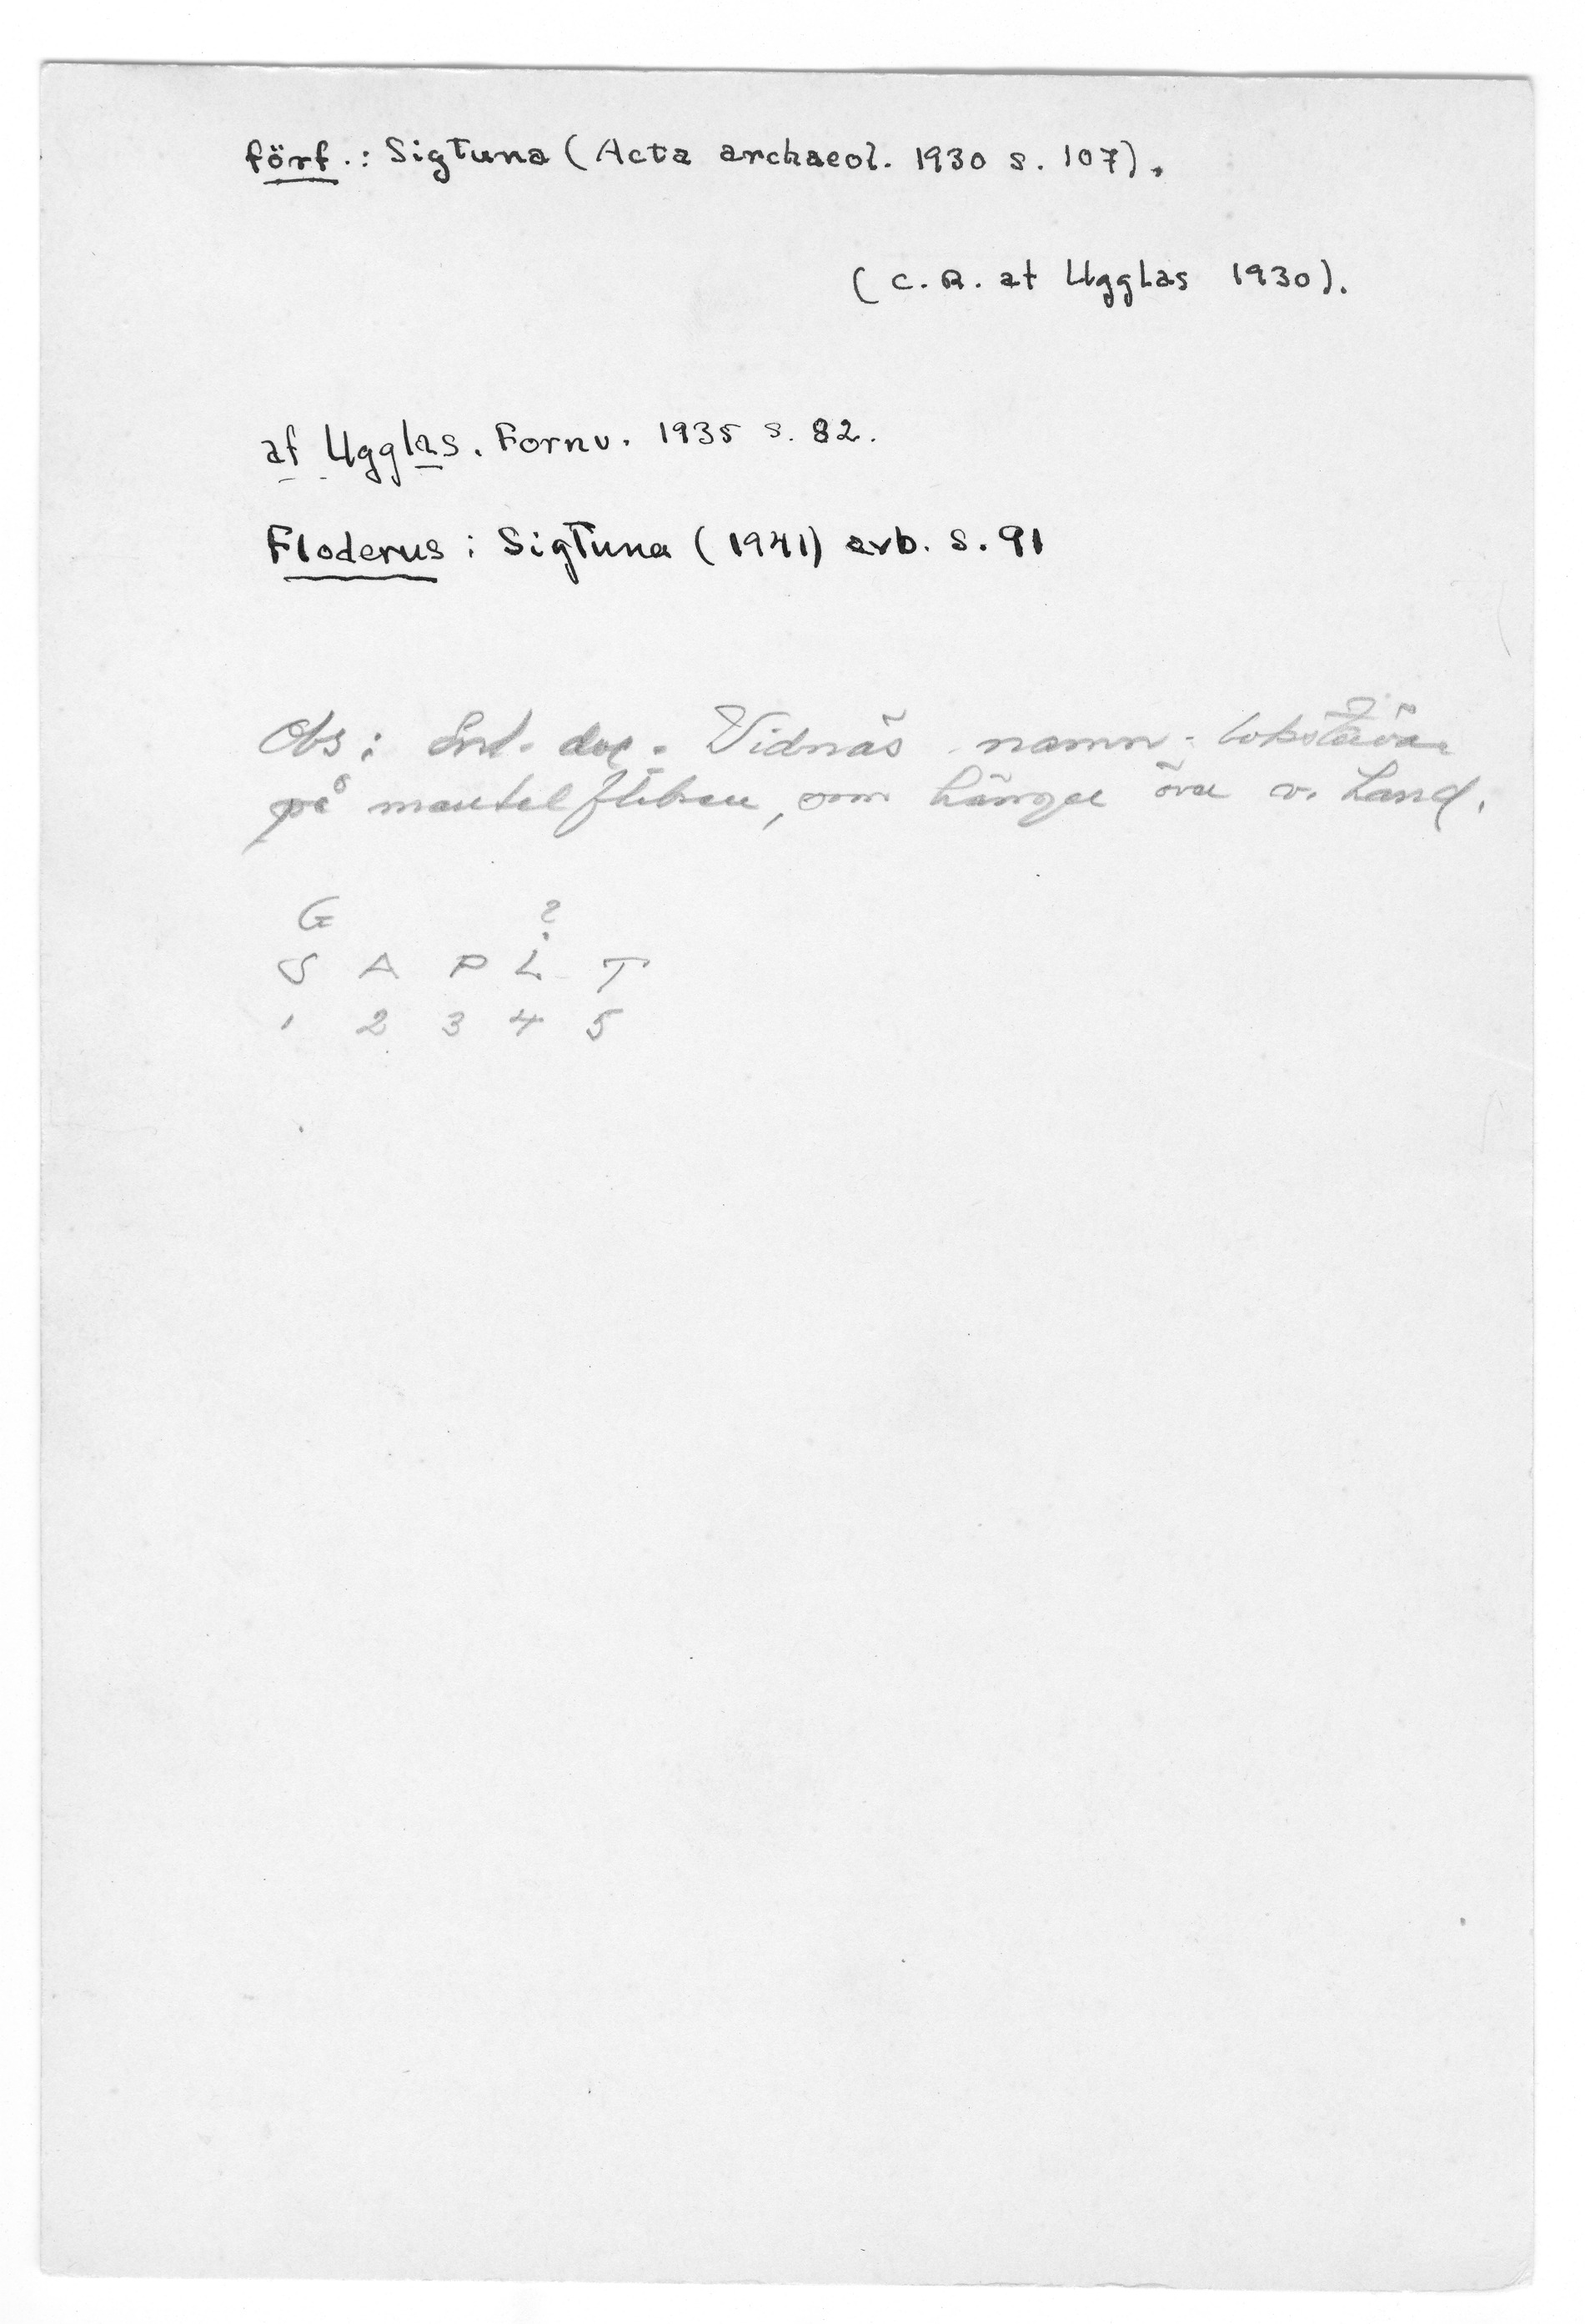 förf.: Sigtuna (Acta archaeol. 1930 s. 107).
(C. R. af Ugglas 1930).
af Ugglas. Fornv. 1935 s. 82.
Floderus: Sigtuna (1941) avb. s. 91
Obs: Enl. doc. Vidnäs namn-bokstäver
på mantelfliken, som hänger över v. hand.
G ?
S A P L T
1 2 3 4 5